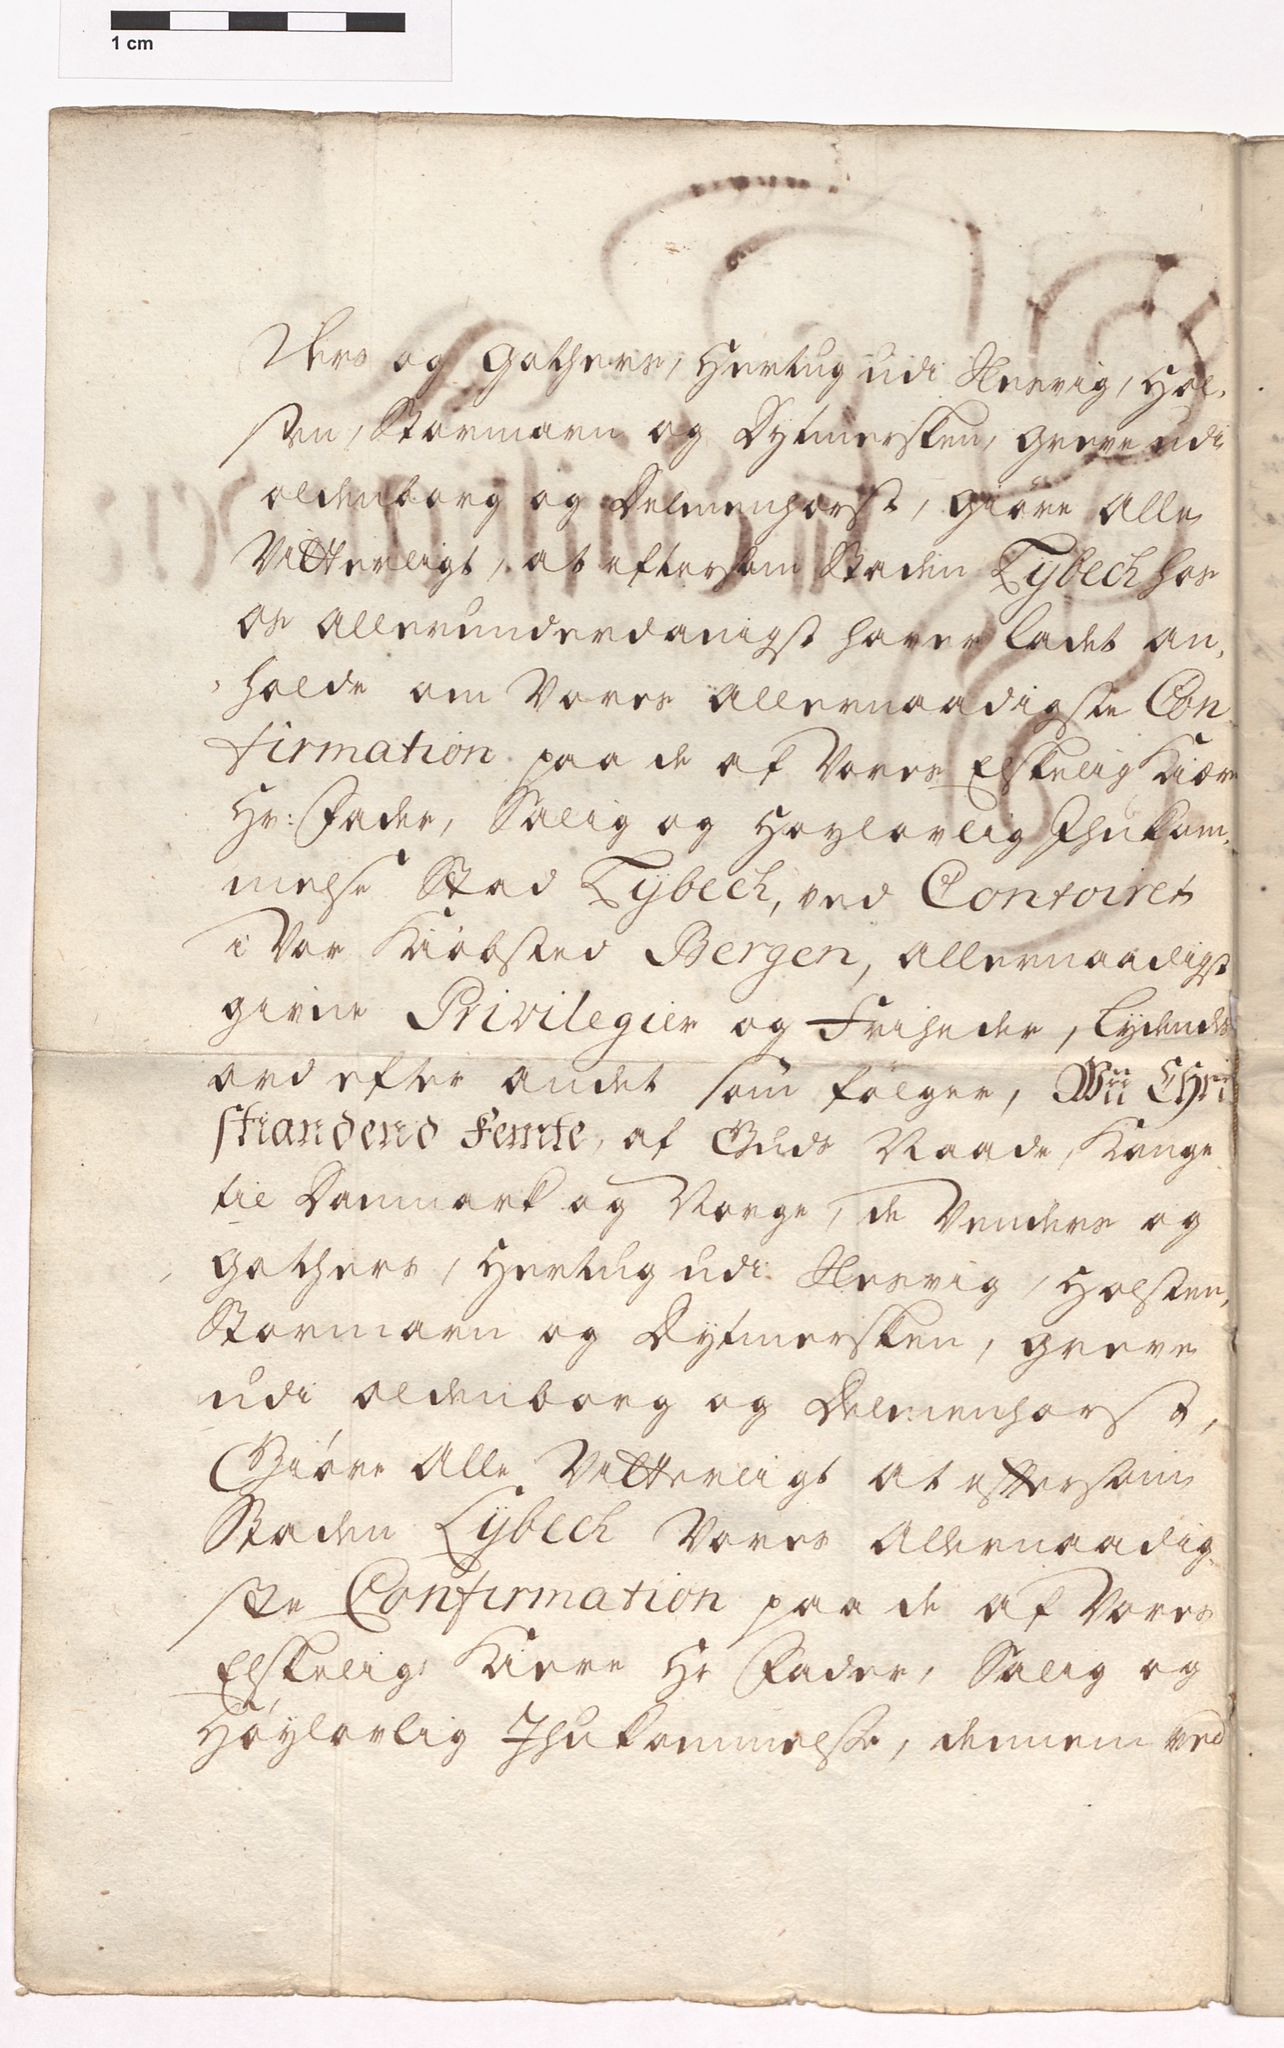 1 cm
ders og Gothers, Hertug udi Slesvig, Hol-
sten, Stormarn og Dytmersken, Greve udi
Oldenborg og Delmenhorst, Giöre Alle
Vitterligt, at eftersom Staden Lybech hos
os Allerunderdanigst haver ladet an-
holde om Vores Allernaadigste Con
firmation paa de af Vores Elskelig Kiære
Hr: Fader, Salig og Høylovlig Ihukom-
melse Stad Lÿbech, ved Contoiret
i Vor Kiöbsted Bergen, Allernaadigst
givne Privilegier og Friheder, lydendes
ord efter andet som fölger, Wii Chri
stian dend Femte, af Guds Naade, Konge
til Danmark og Norge, de Venders og
Gothers, Hertug udi Slesvig, Holsten,
Stormarn og Dytmersken, Greve
udi Oldenborg og Delmenhorst,
Giöre Alle Vitterligt at eftersom
Staden Lÿbech Vores Allernaadig-
ste Confirmation paa de af Vores
Elskelig Kiere Hr Fader, Salig og
Höylovlig Ihukommelse, dennem ved